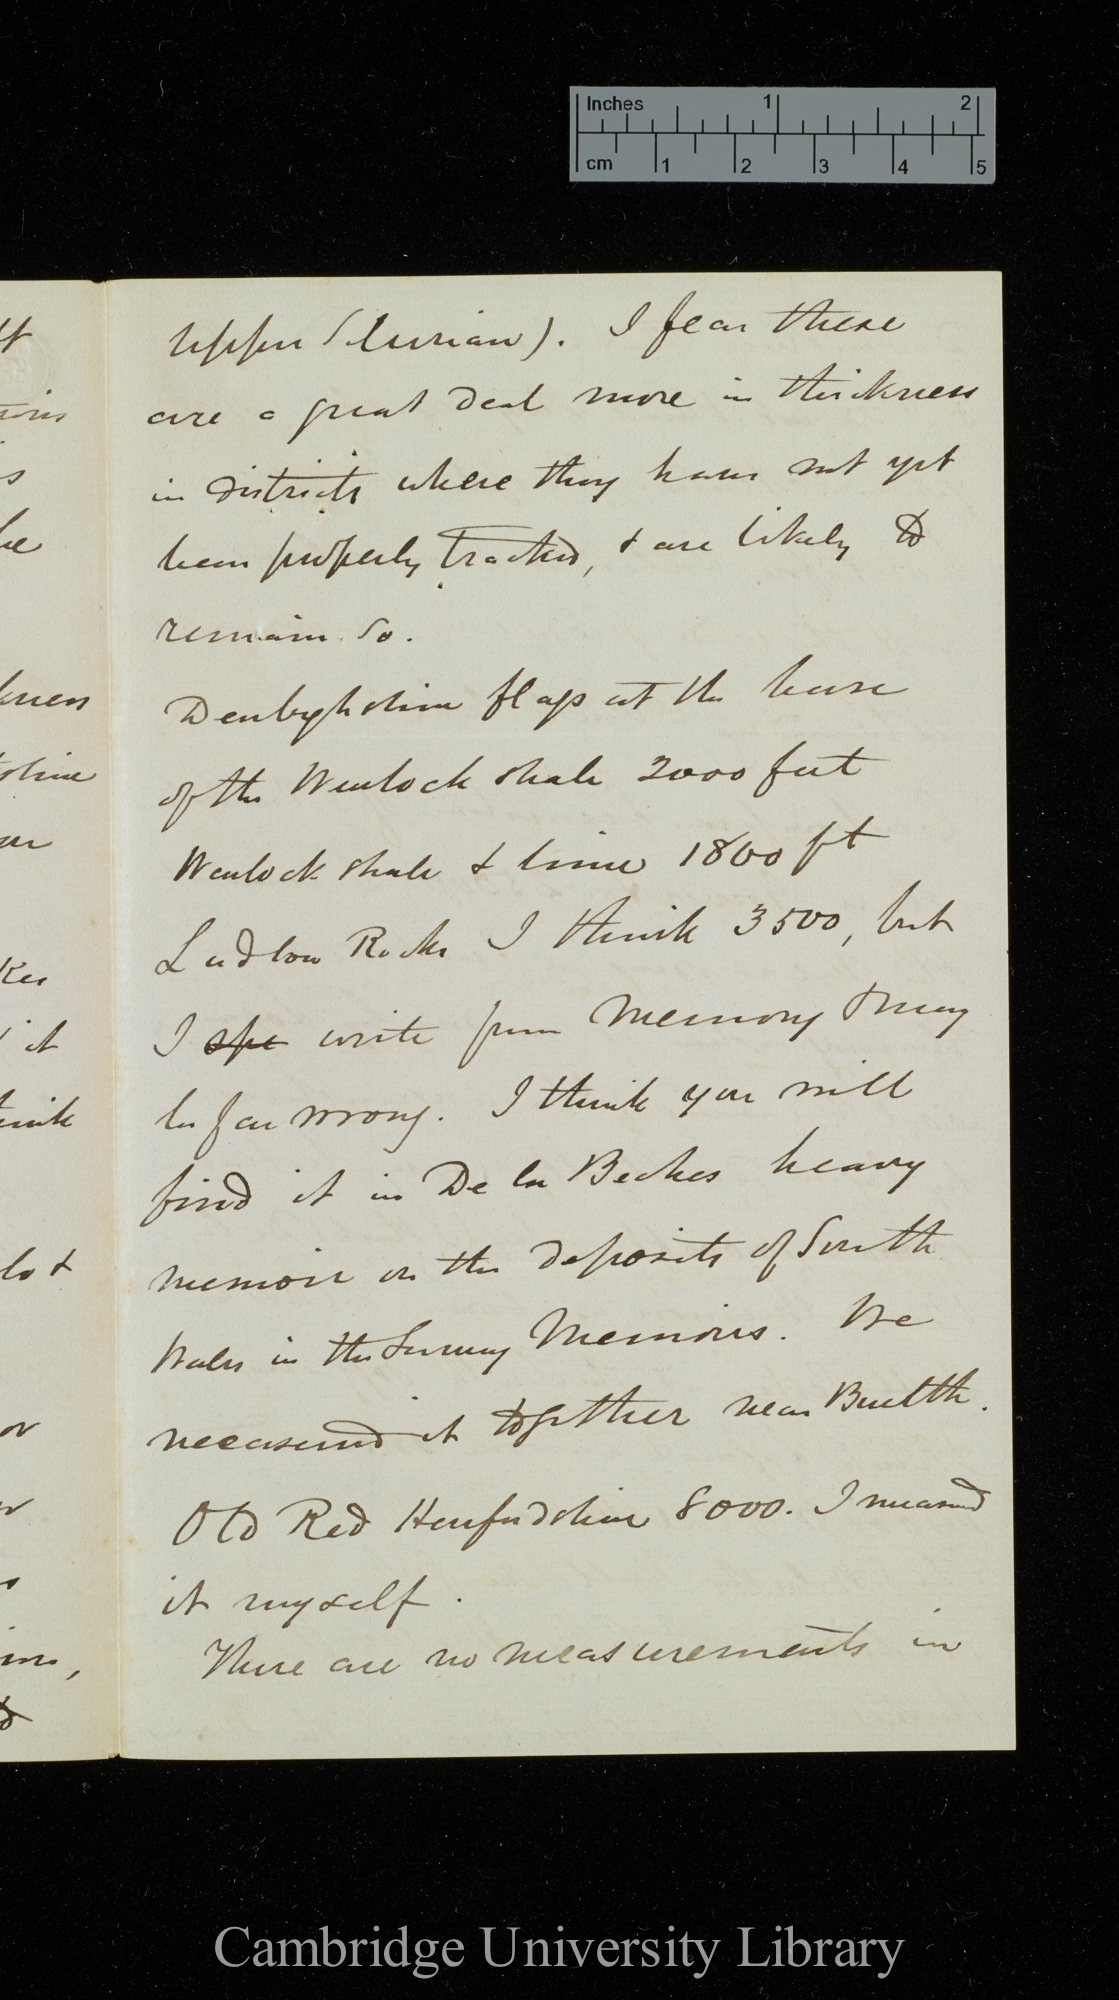 Inches 1 2
cm 1 2 3 4 5
Upper Silurian). I fear these
are a great deal more in thickness
in districts where they have not yet
been properly tracked, & are likely to
remain so.
Denbyhshire flags at the base
of the Wenlock shale 2000 feet
Wenlock shale & lime 1800 ft
Ludlow Rocks I think 3500, but
I spe write from memory & may
be far wrong. I think you will
find it in De la Beches heavy
memoir on the deposits of South
Wales in the Survey Memoirs. We
measured it together near Builth.
Old Red Herefordshire 8000. I measured
it myself.
There are no measurements in
Cambridge University Library